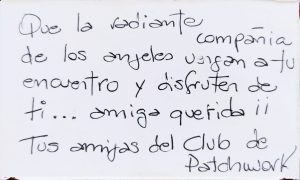 Que la radiante compañia
de los angeles vengan a tu
encuentro y disfruten de
ti... amiga querida ¡¡
Tus amigas del Club de
Patchwork